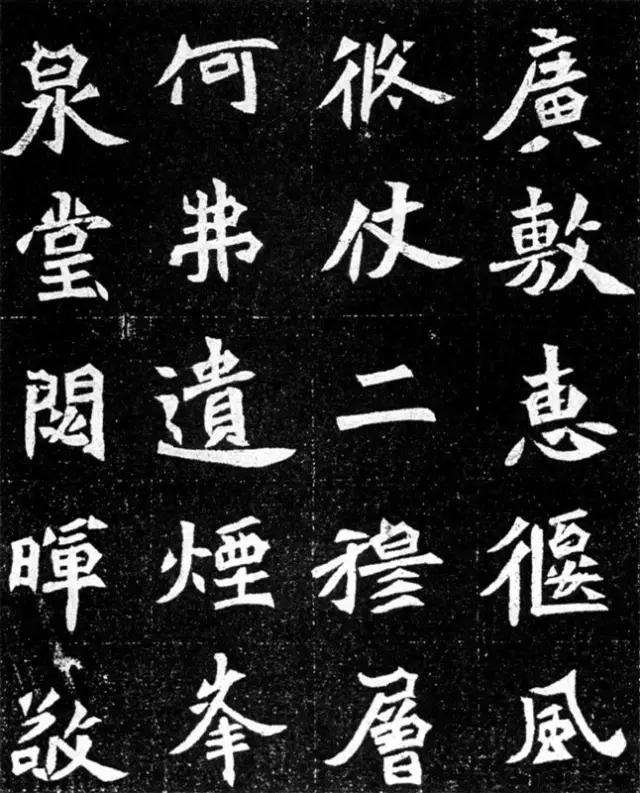 廣敷惠偃風
仗二穆層
何弗遺煙峯
泉堂閟暉敬